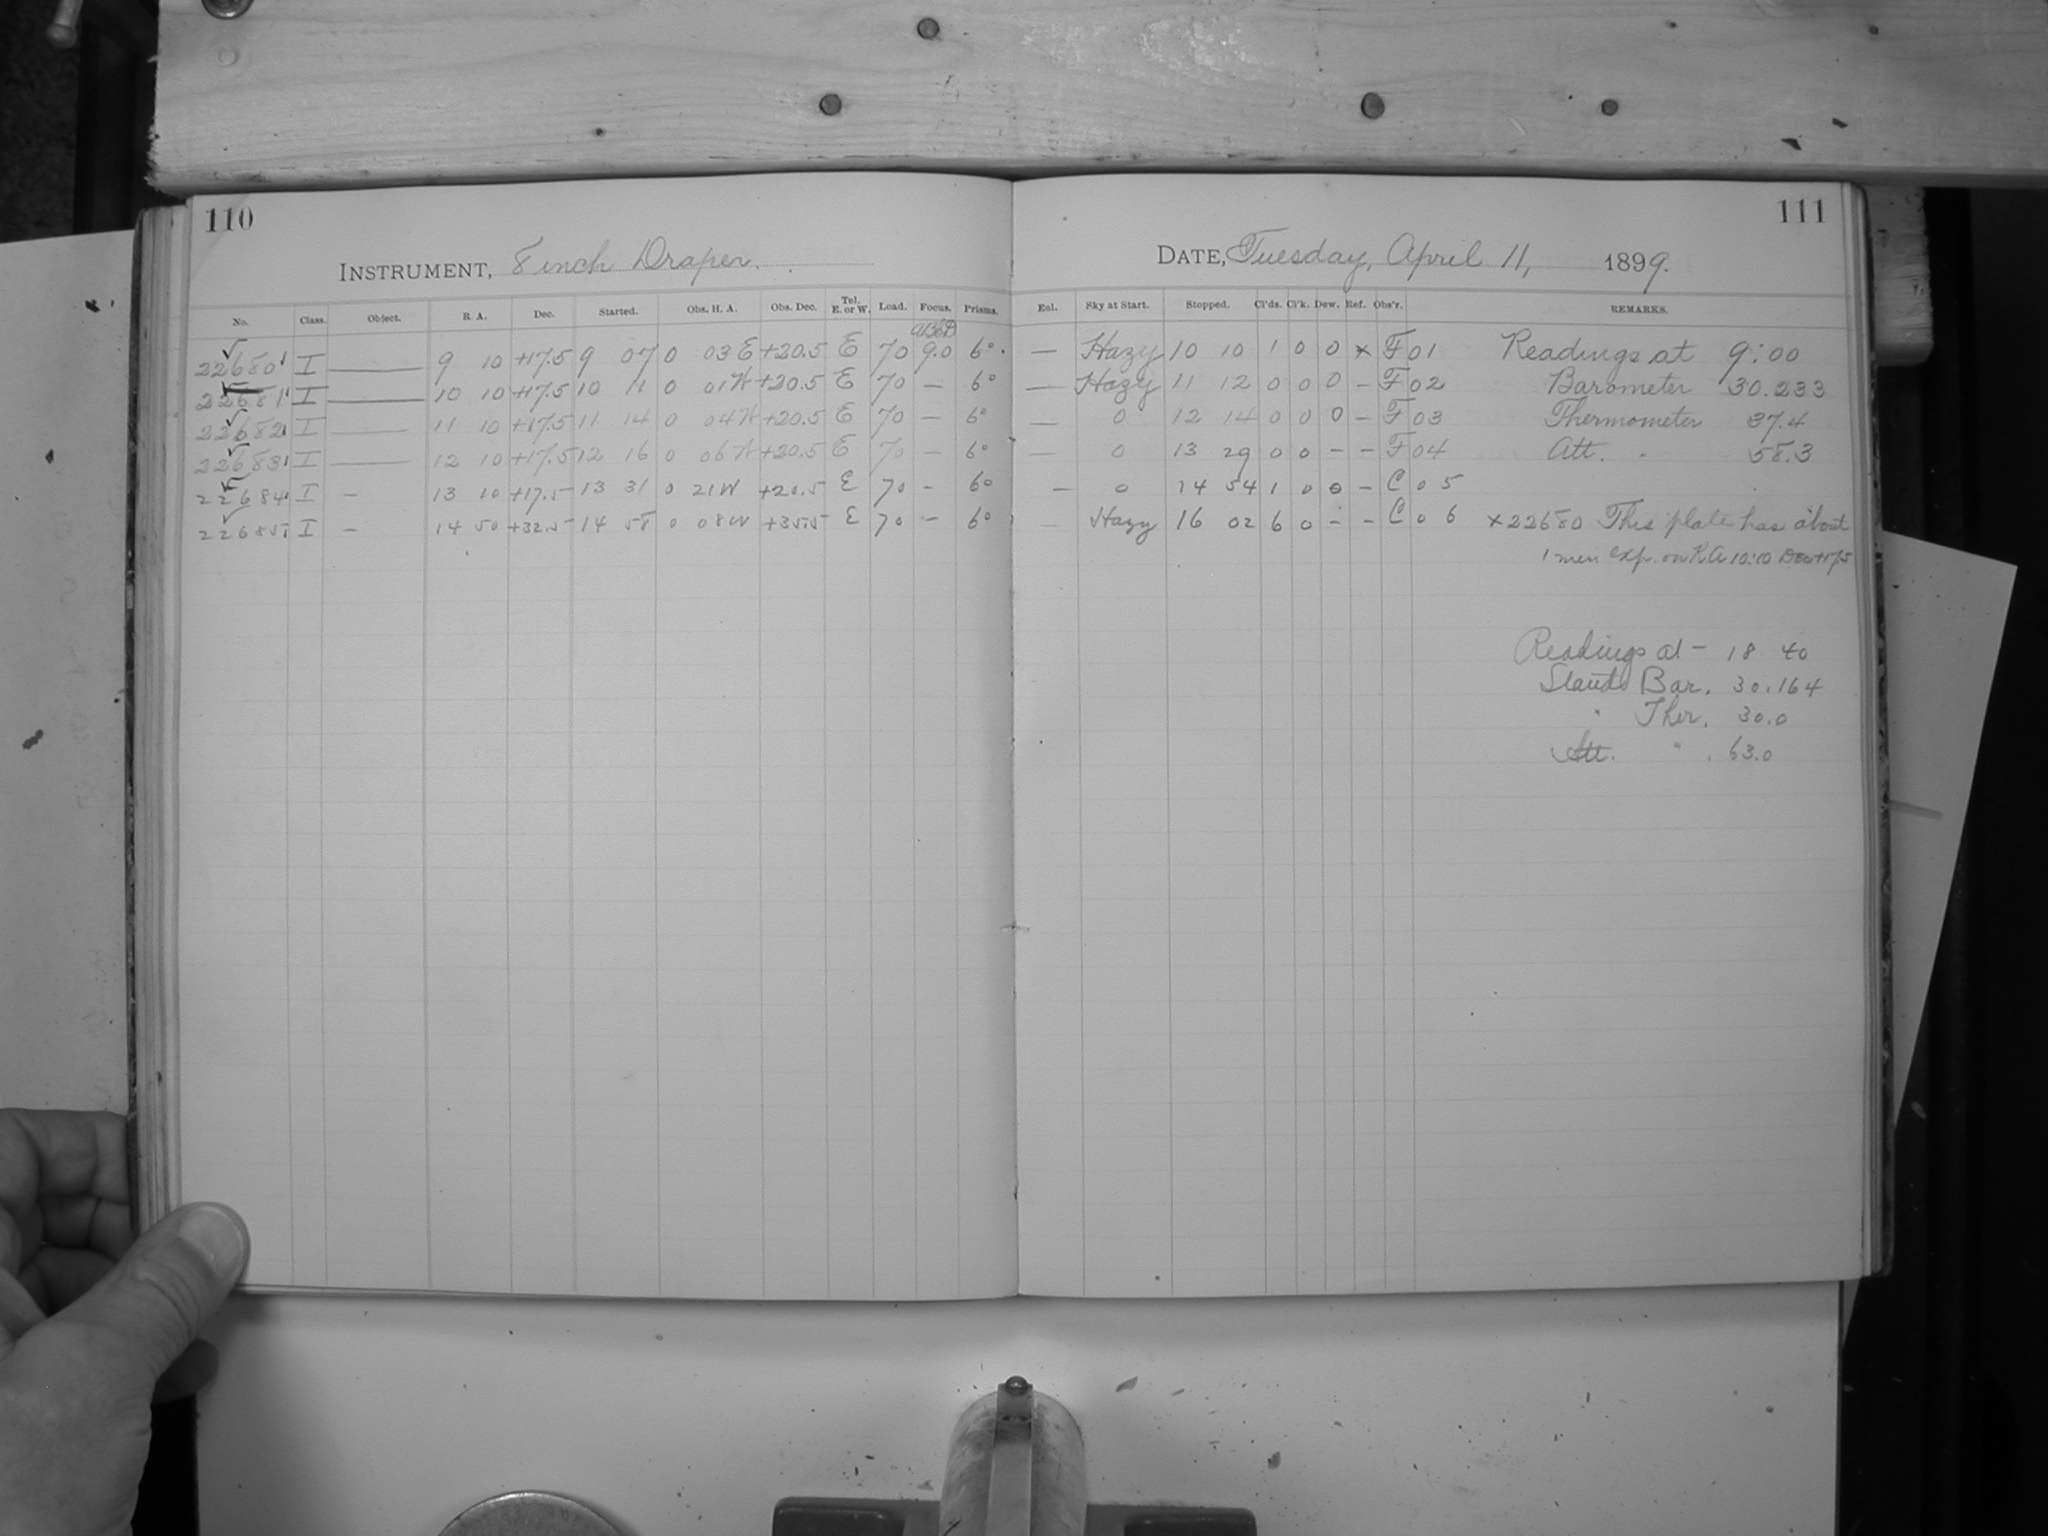 110
INSTRUMENT, 8 inch Draper.
No. Class. Object. R. A. Dec. Started. Obs. H. A. Obs. Dec. Tel. E. or W. Load. Focus. Prisms.
22680 I — 9 10 +17.5 9 07 0 03 E +20.5 E 70 9.0 6°
22681 I — 10 10 +17.5 10 11 0 01 W +20.5 E 70 — 6°
22682 I — 11 10 +17.5 11 14 0 04 W +20.5 E 70 — 6°
22683 I — 12 10 +17.5 12 16 0 06 W +20.5 E 70 — 6°
22684 I — 13 10 +17.5 13 31 0 21 W +20.5 E 70 — 6°
22685 I — 14 50 +32.5 14 58 0 08 W +35.5 E 70 — 6°
111
DATE, Tuesday, April 11, 1899.
Enl. Sky at Start. Stopped. Cl'ds. Cl'k. Dew. Ref. Obs'r. REMARKS.
— Hazy 10 10 1 0 0 x F 01 Readings at 9:00
— Hazy 11 12 0 0 0 – F 02 Barometer 30.233
— 0 12 14 0 0 0 – F 03 Thermometer 37.4
— 0 13 29 0 0 – – F 04 Att. " 58.3
— 0 14 54 1 0 0 – C 05
— Hazy 16 02 6 0 – – C 06 x22680 This plate has about
1 min exp. on R A 10:10 Dec +17.5
Readings at – 18 40
Stand Bar. 30.164
" Ther. 30.0
Att. " 63.0